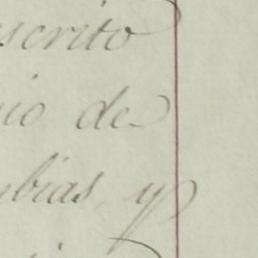 scrito
io de
bias, y